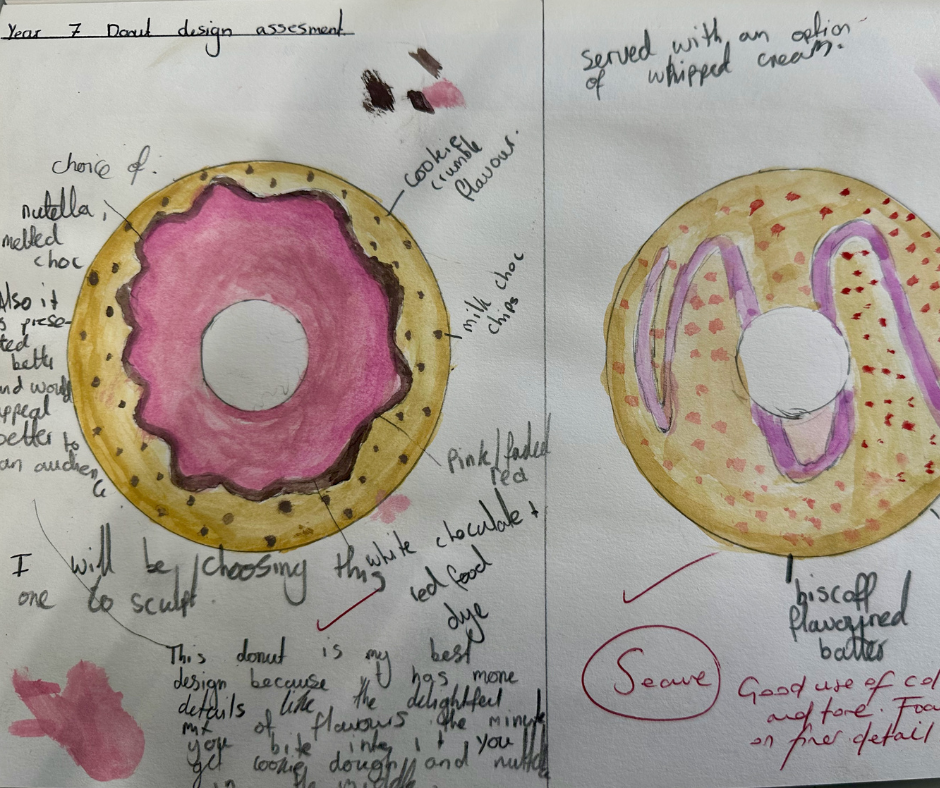 Year 7 Donut design assesment
served with an option
of whipped cream.
choice of:
nutella,
melted
choc
cookie
crumble
flavour.
milk choc
chips
Also it
is prese-
ted
better
and would
appeal
better to
an audience
Pink/faded
red
white chocolate +
red food
dye
I will be choosing this
one to sculpt.
This donut is my best
design because it has more
details like the delightful
mix of flavours the minute
you bite into it you
get cookie dough and nutella
in the middle
biscoff
flavoured
batter
Secure
Good use of col
and tone. Foc
on finer detail